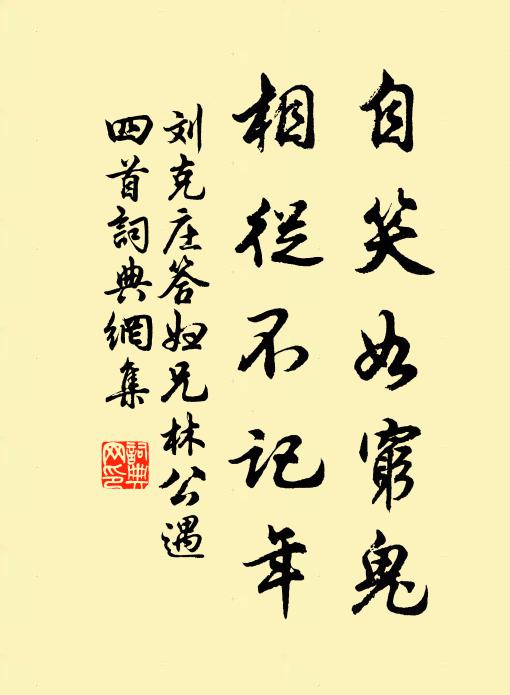 自笑如窮鬼
相從不記年
刘克庄答妇兄林公遇
四首詞典網集
詞典网印